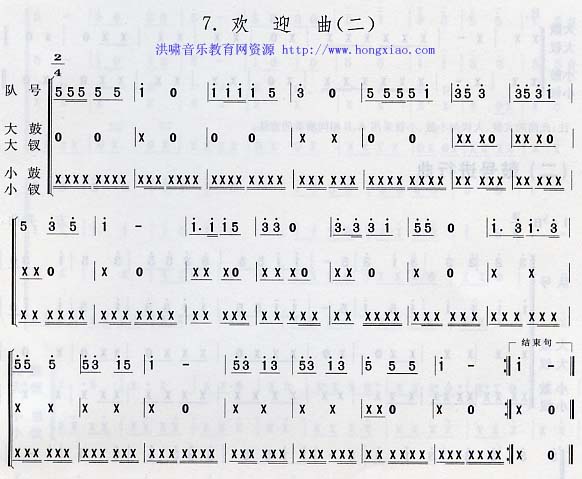 7. 欢 迎 曲(二)
洪啸音乐教育网资源 http://www.hongxiao.com
2/4
队 号 5555 5 5 | i 0 | i i i i 5 | 3 0 | 5 5 5 5 i | 35 3 | 3535 i |
大 鼓
大 钗 0 0 | x 0 | 0 0 | x 0 | 0 0 | x x 0 | x x 0 |
小 鼓
小 钗 xxxx xxxx | xxxx xxxx | xxxx xxxx | xxxx xxxx | xxxx xxxx | xxxx xxxx | xxxx xxxx |
5 35 | i - | i. i i5 | 33 0 | 3. 33 i | 5 5 0 | i. 3 i. 3 |
x x 0 | x 0 | x x 0 | x x 0 | x x x 0 | x x x 0 | x x |
xxxx xxxx | xxxx xxxx | xxxx xxxx | xxxx xxxx | xxxx xxxx | xxxx xxxx | xxxx xxxx |
结束句
55 5 | 53 13 5 | i - | 53 13 | 53 13 5 | 5 555 | i - :| i - :|
x x | x x 0 | x 0 | x x | x x 0 | xx 0 | x 0 :| x 0 :|
xxxx xxxx | xxxx xxxx | xxxx xxxx | xxxx xxxx | xxxx xxxx | xxxx xxxx | xxxx xxxx :| x 0 :|